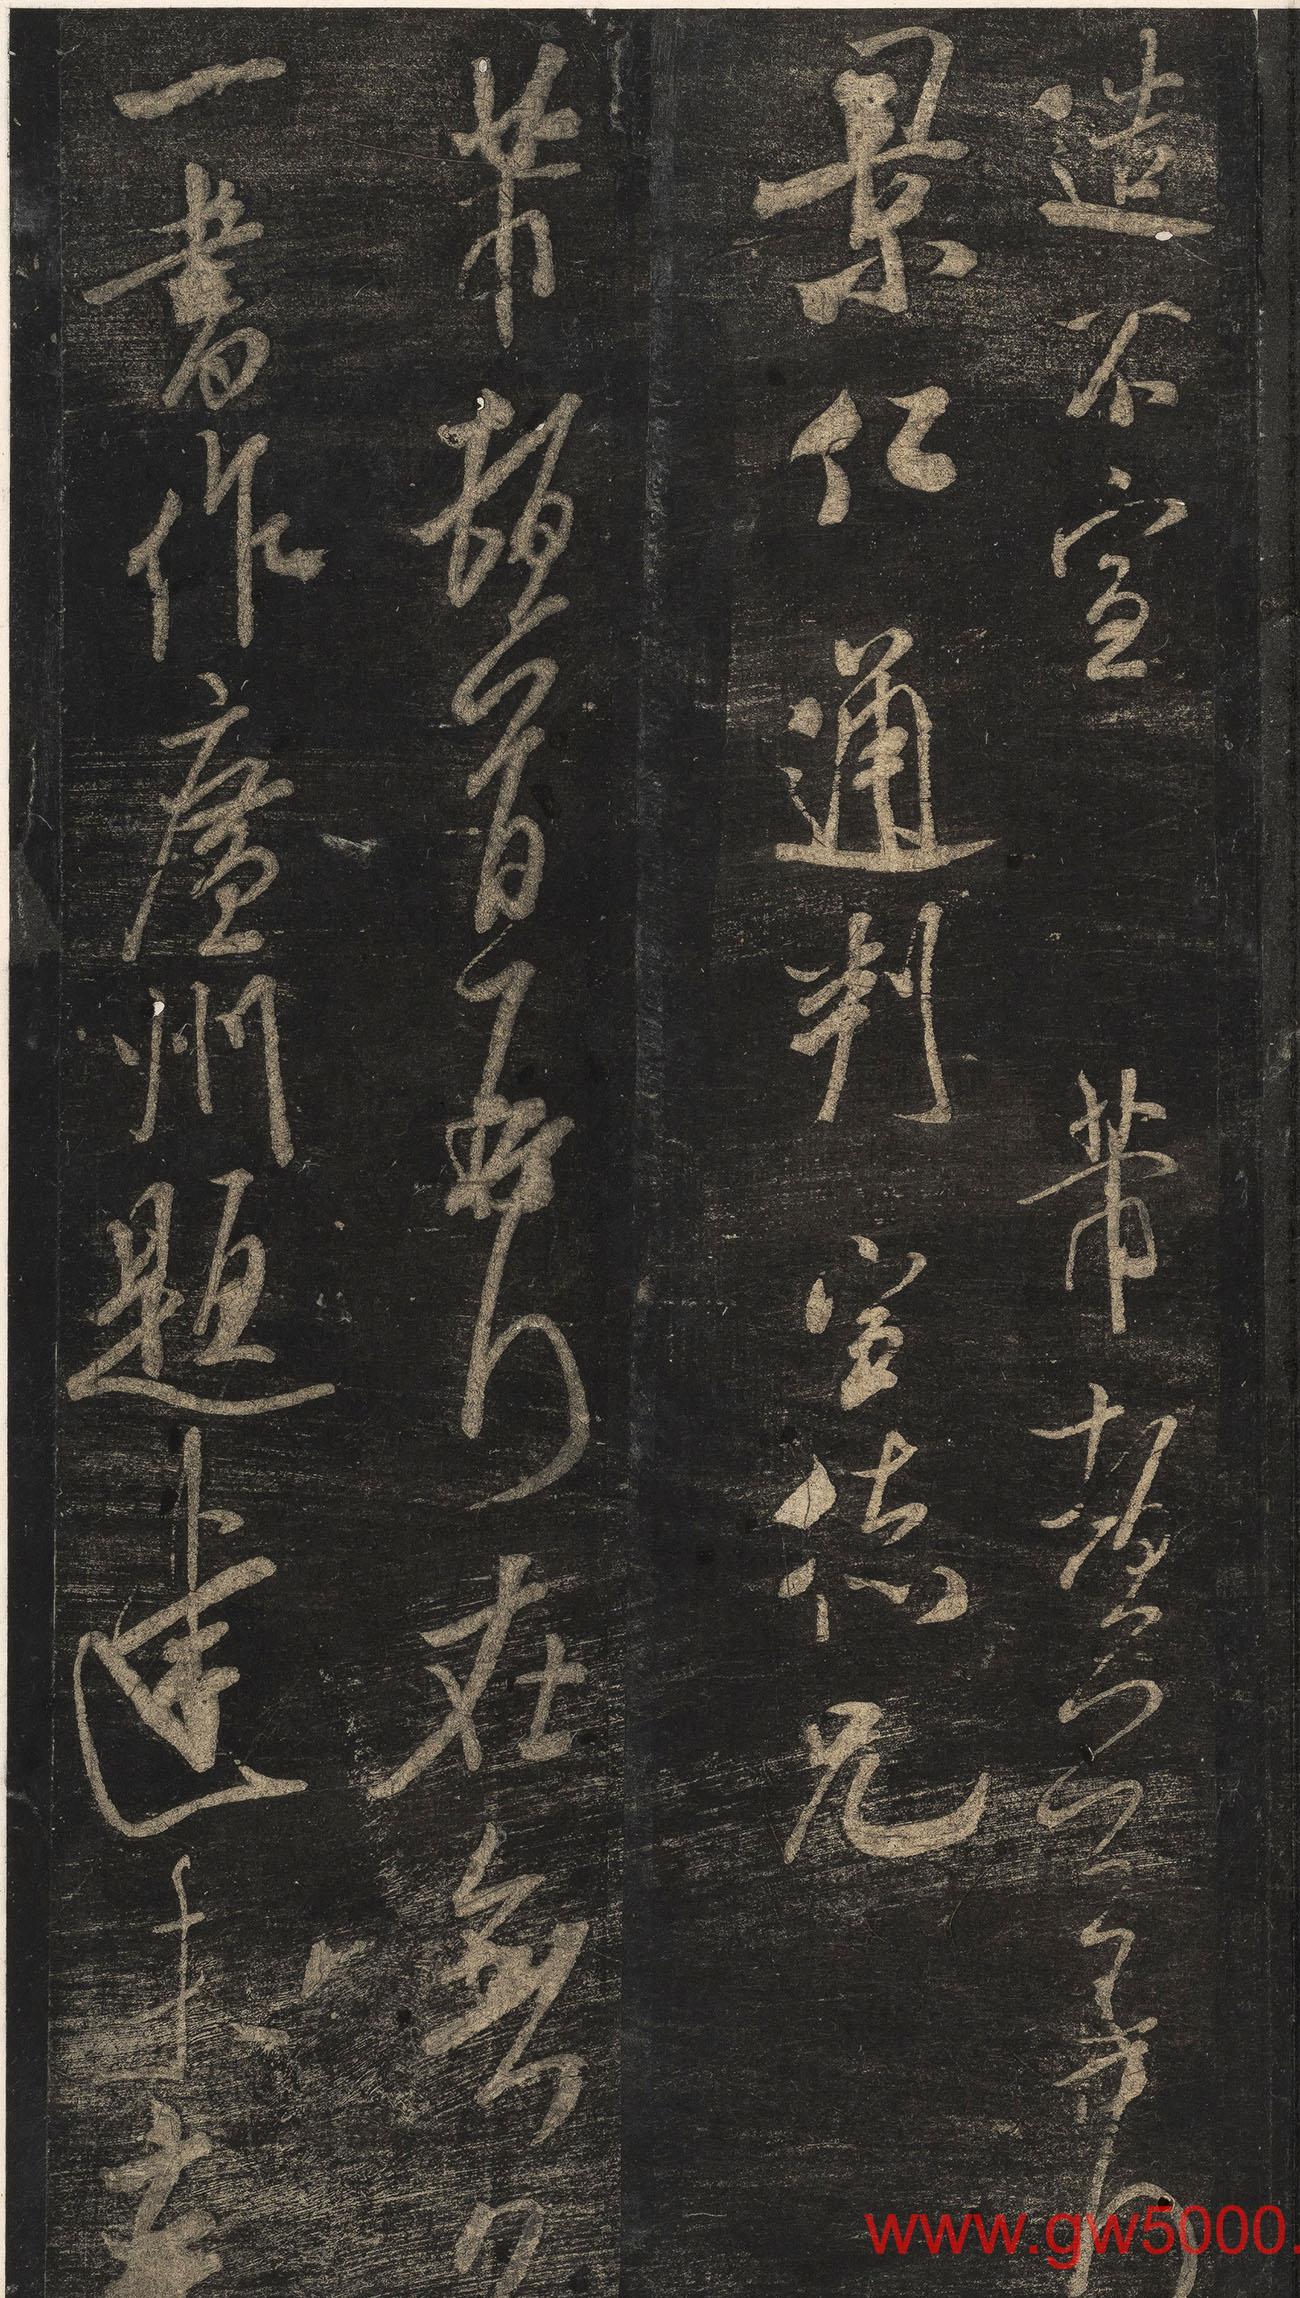 造不宣 芾頓首再拜
景仁通判宣德兄
芾頓首再拜在無
一書作廬州題達
www.gw5000.